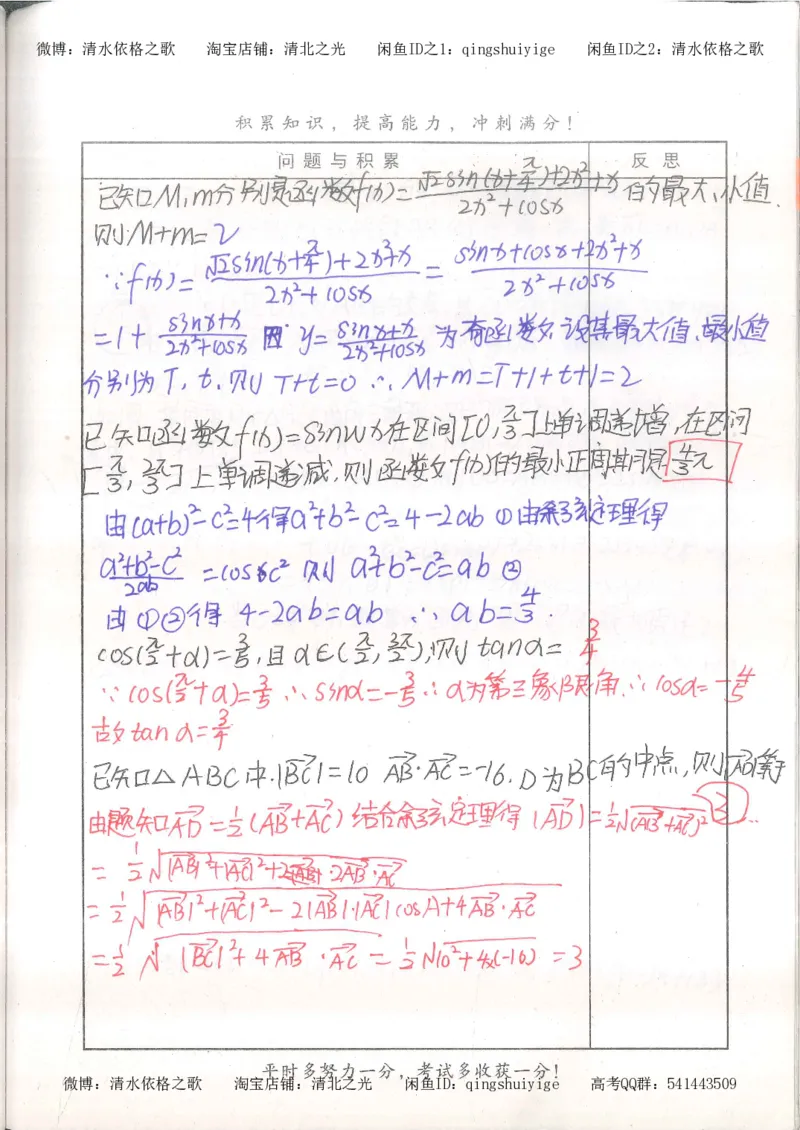 微博：清水依格之歌 淘宝店铺：清北之光 闲鱼ID之1：qingshuiyige 闲鱼ID之2：清水依格之歌
积累知识，提高能力，冲刺满分！
问题与积累 反思
已知M,m分别是函数f(x)=(√2sin(x+π/4)+2x²+x)/(2x²+cosx)的最大、小值.
则M+m=2
∵f(x)=(√2sin(x+π/4)+2x²+x)/(2x²+cosx)=(sinx+cosx+2x²+x)/(2x²+cosx)
=1+(sinx+x)/(2x²+cosx) 因 y=(sinx+x)/(2x²+cosx)为奇函数.设其最大值、最小值
分别为T,t,则T+t=0 ∴M+m=T+1+t+1=2
已知函数f(x)=sinwx在区间[0,π/3]上单调递增,在区间
[π/3,2π/3]上单调递减,则函数f(x)的最小正周期是4/3π
由(a+b)²-c²=4得a²+b²-c²=4-2ab ①由余弦定理得
(a²+b²-c²)/2ab=cos6c² 则 a²+b²-c²=ab ②
由①②得 4-2ab=ab ∴ab=4/3.
cos(π/2+α)=3/5,且α∈(π/2,3π/2),则tanα=3/4
∵cos(π/2+α)=3/5∴sinα=-3/5∴α为第三象限角∴cosα=-4/5
故tanα=3/4
已知△ABC中.|BC|=10 AB·AC=-16.D为BC的中点,则|AD|等于
由题知AD=1/2(AB+AC)结合余弦定理得|AD|=1/2√(AB+AC)² ③..
=1/2√|AB|²+|AC|²+2AB·AC
=1/2√|AB|²+|AC|²-2|AB|·|AC|cosA+4AB·AC
=1/2√|BC|²+4AB·AC=1/2√10²+4×(-16)=3
平时多努力一分，考试多收获一分！
微博：清水依格之歌 淘宝店铺：清北之光 闲鱼ID：qingshuiyige 高考QQ群：541443509